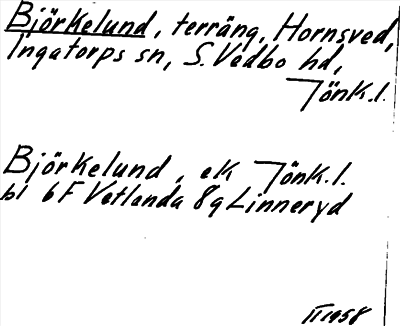 Björkelund, terräng, Hornsved,
Ingatorps sn, S. Vedbo hd,
Jönk.l.
Björkelund, ek Jönk.l.
bl 6F Vetlanda 8g Linneryd
II 1958